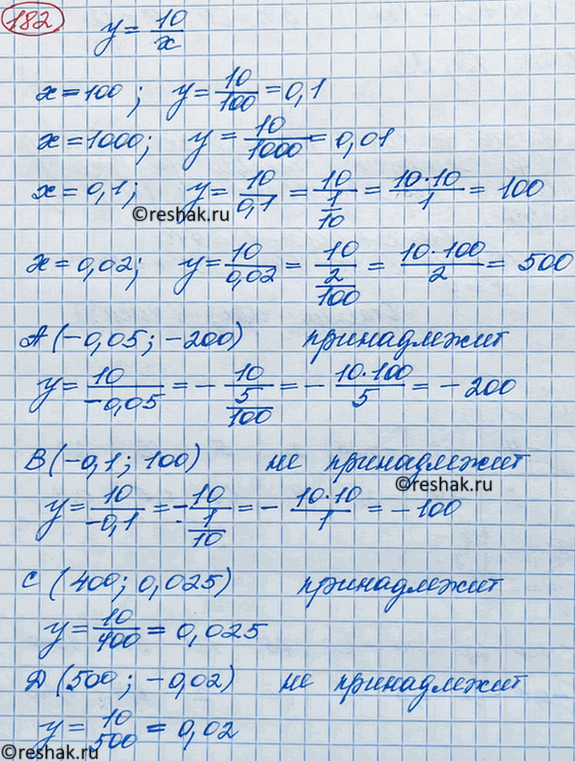 182
y = 10/x
x = 100; y = 10/100 = 0,1
x = 1000; y = 10/1000 = 0,01
x = 0,1; y = 10/0,1 = 10/(1/10) = 10·10/1 = 100
©reshak.ru
x = 0,02; y = 10/0,02 = 10/(2/100) = 10·100/2 = 500
A (-0,05; -200) принадлежит
y = 10/-0,05 = - 10/(5/100) = - 10·100/5 = -200
B (-0,1; 100) не принадлежит
©reshak.ru
y = 10/-0,1 = - 10/(1/10) = - 10·10/1 = -100
C (400; 0,025) принадлежит
y = 10/400 = 0,025
Д (500; -0,02) не принадлежит
y = 10/500 = 0,02
©reshak.ru